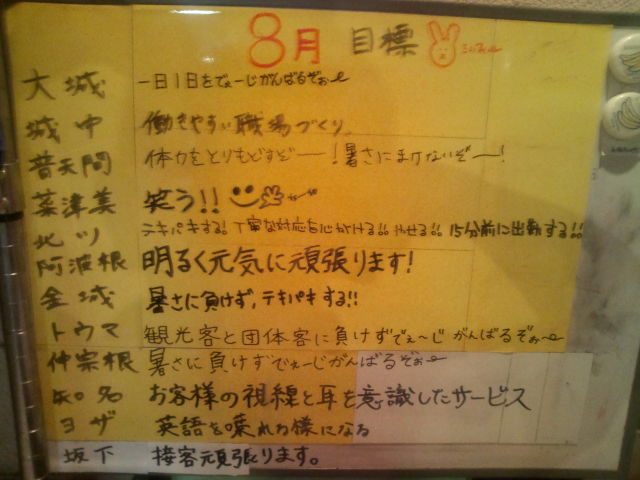 8月 目標
大城 一日1日をでぇーじがんばるぞぉー
城中 働きやすい職場づくり
普天間 体力をとりもどすぞー!暑さにまけないぞー!
菜津美 笑う!!
北ツ テキパキする!丁寧な対応を心がける!!やせる!!15分前に出勤する!!
阿波根 明るく元気に頑張ります!
金城 暑さに負けず,テキパキする!!
トウマ 観光客と団体客に負けずでぇ〜じがんばるぞぉ〜
仲宗根 暑さに負けずでぇーじがんばるぞぉー
知名 お客様の視線と耳を意識したサービス
ヨザ 英語を喋れる様になる
坂下 接客頑張ります。